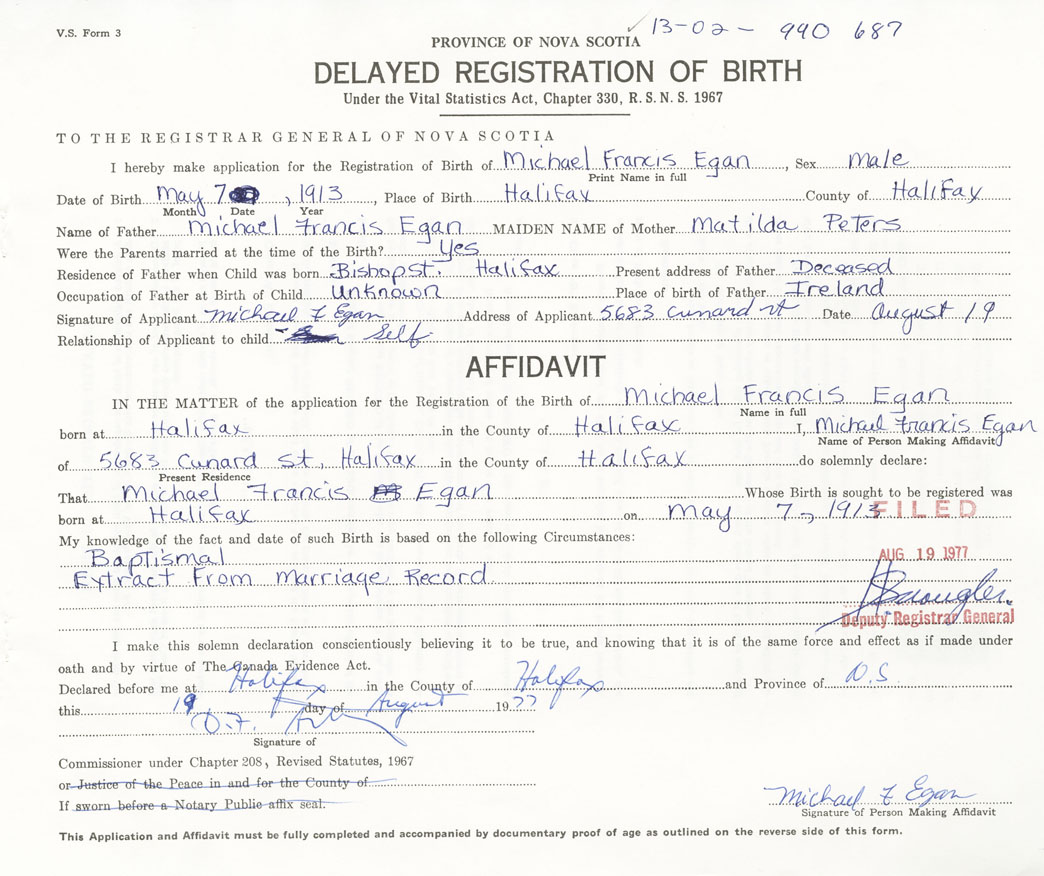 V.S. Form 3
✓ 13-02- 990 687
PROVINCE OF NOVA SCOTIA
DELAYED REGISTRATION OF BIRTH
Under the Vital Statistics Act, Chapter 330, R. S. N. S. 1967
TO THE REGISTRAR GENERAL OF NOVA SCOTIA
I hereby make application for the Registration of Birth of Michael Francis Egan, Sex male
Print Name in full
Date of Birth May 7, 1913, Place of Birth Halifax County of Halifax
Month Date Year
Name of Father Michael Francis Egan MAIDEN NAME of Mother Matilda Peters
Were the Parents married at the time of the Birth? Yes
Residence of Father when Child was born Bishop st. Halifax Present address of Father Deceased
Occupation of Father at Birth of Child Unknown Place of birth of Father Ireland
Signature of Applicant Michael F Egan Address of Applicant 5683 Cunard st Date August 19
Relationship of Applicant to child Self
AFFIDAVIT
IN THE MATTER of the application for the Registration of the Birth of Michael Francis Egan
Name in full
born at Halifax in the County of Halifax I, Michael Francis Egan
Name of Person Making Affidavit
of 5683 Cunard St, Halifax in the County of Halifax do solemnly declare:
Present Residence
That Michael Francis Egan Whose Birth is sought to be registered was
born at Halifax on May 7, 1913
FILED
My knowledge of the fact and date of such Birth is based on the following Circumstances:
Baptismal
AUG 19 1977
Extract From Marriage Record
Deputy Registrar General
I make this solemn declaration conscientiously believing it to be true, and knowing that it is of the same force and effect as if made under
oath and by virtue of The Canada Evidence Act.
Declared before me at Halifax in the County of Halifax and Province of N.S.
this 19 day of August 1977
D.F.
Signature of
Commissioner under Chapter 208, Revised Statutes, 1967
or Justice of the Peace in and for the County of
If sworn before a Notary Public affix seal.
Michael F Egan
Signature of Person Making Affidavit
This Application and Affidavit must be fully completed and accompanied by documentary proof of age as outlined on the reverse side of this form.